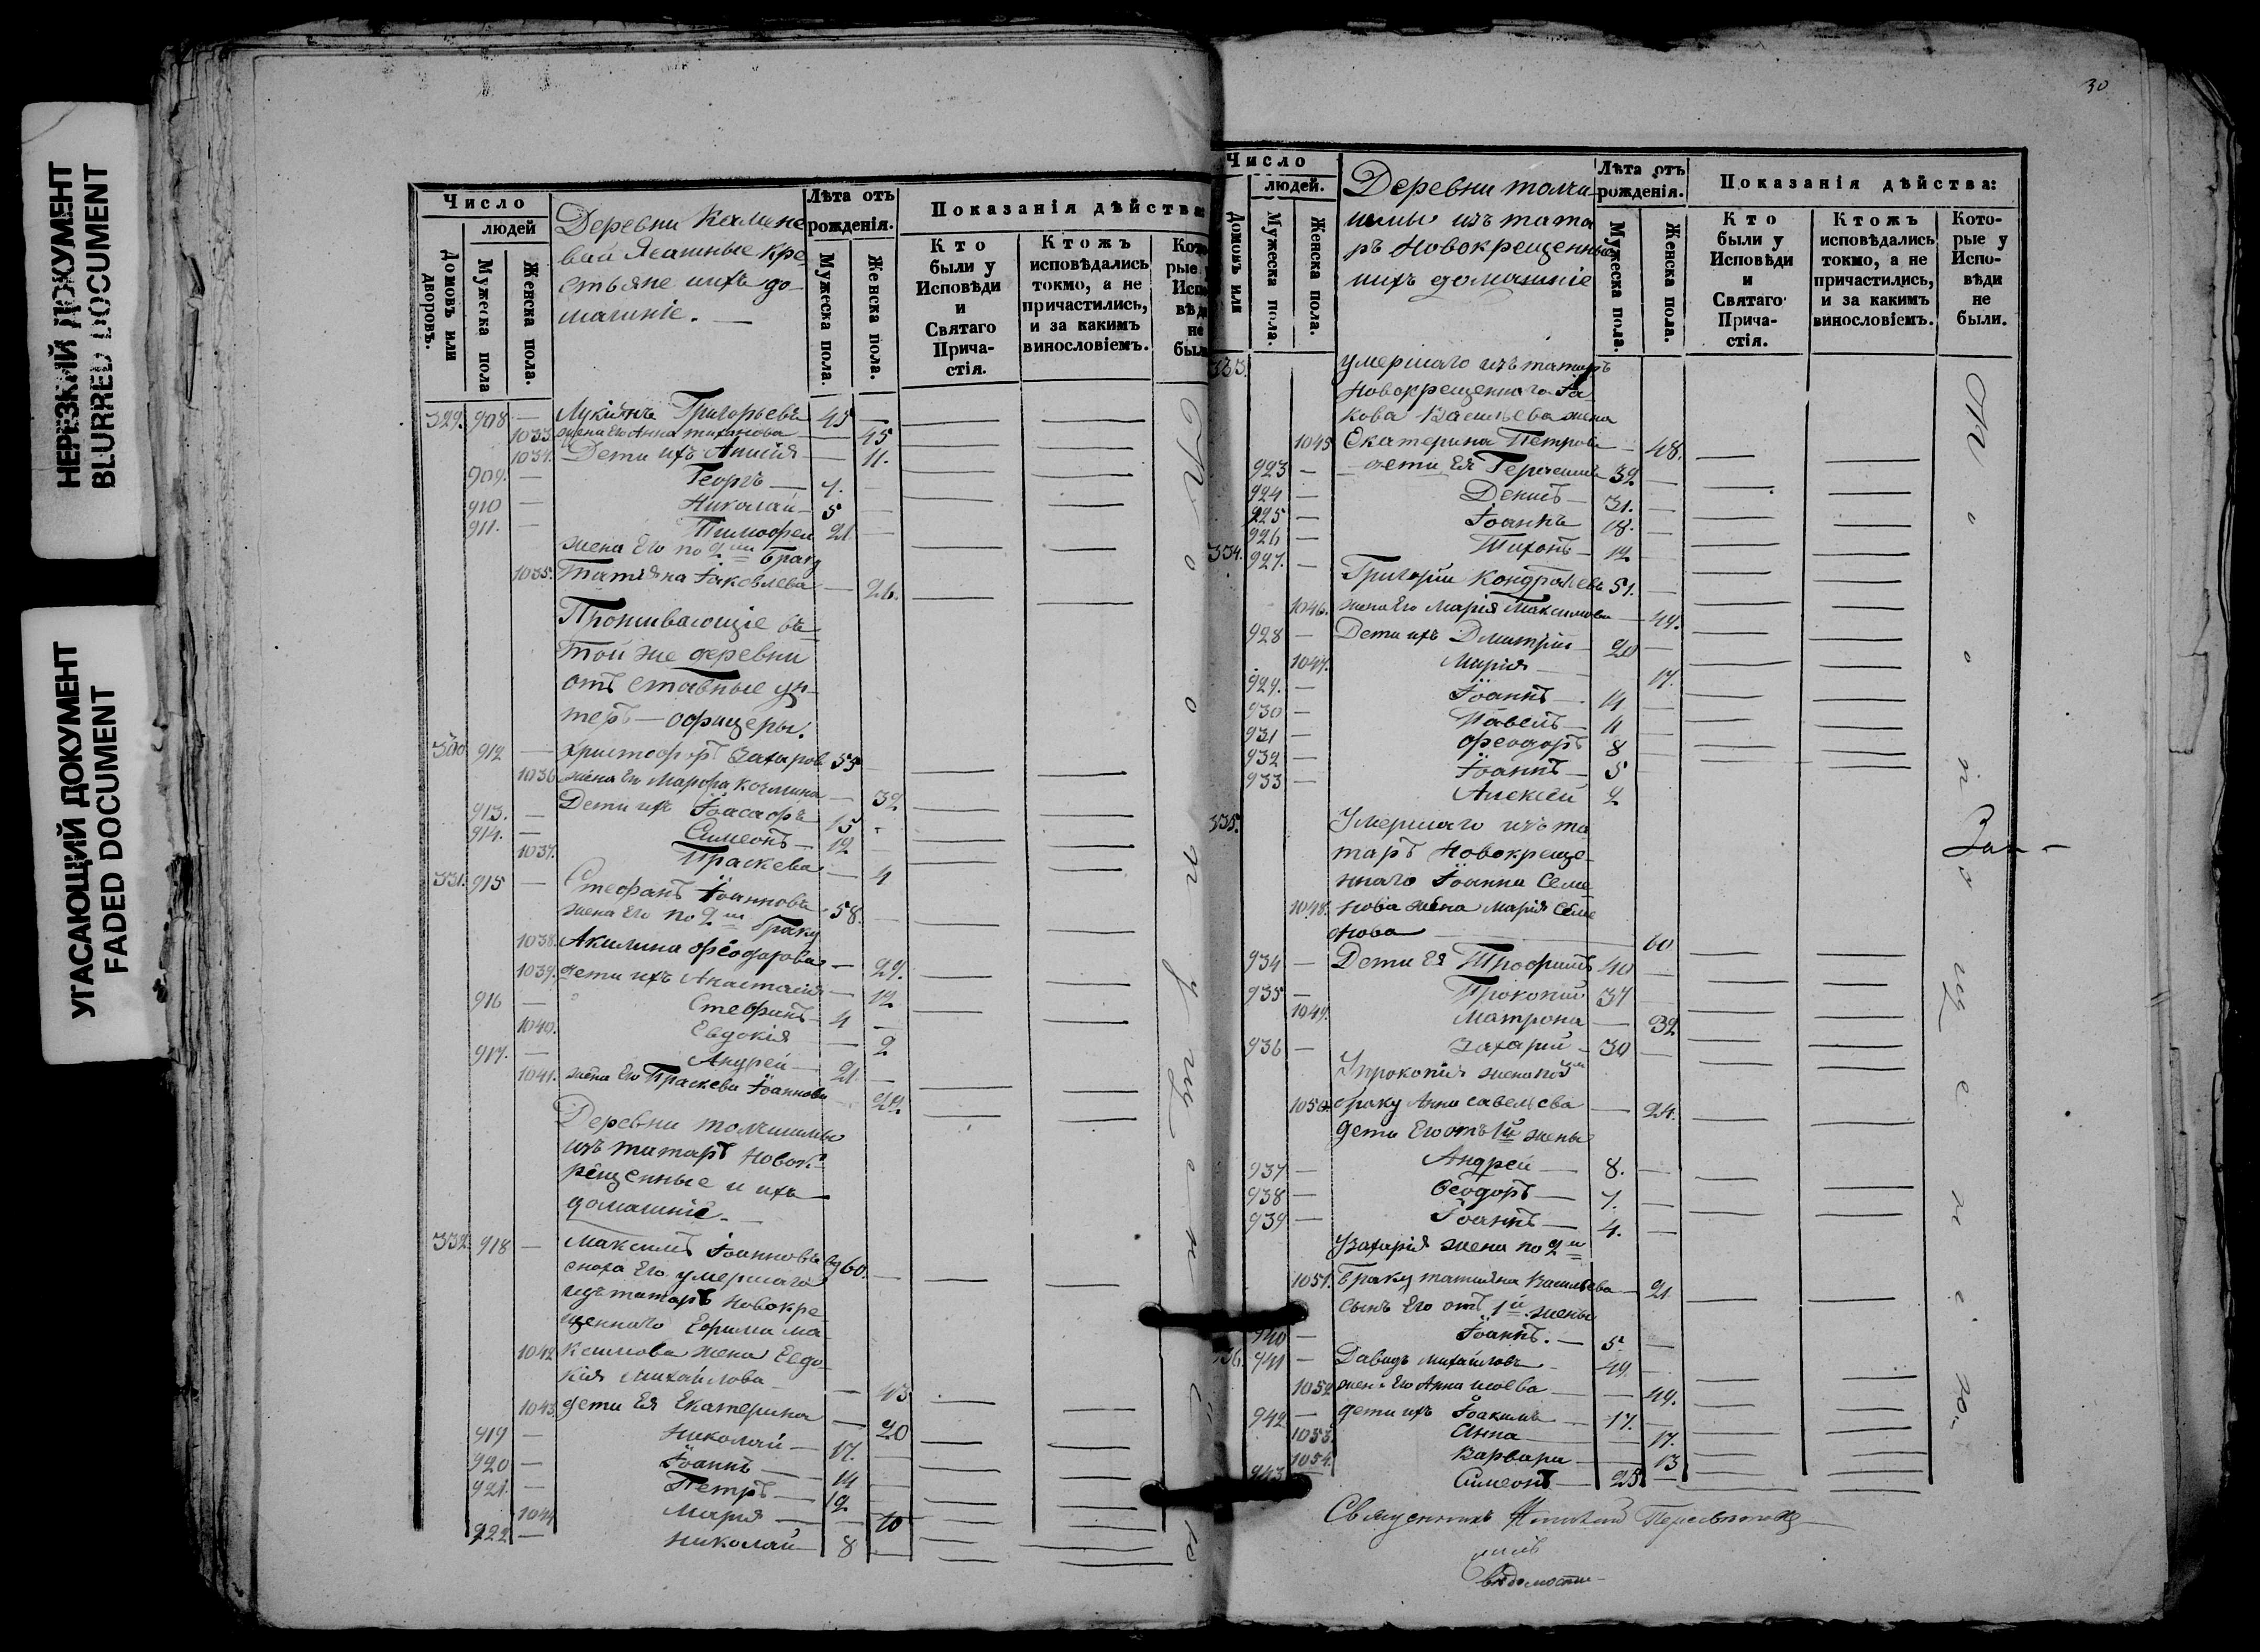 НЕРЕЗКИЙ ДОКУМЕНТ
BLURRED DOCUMENT
УГАСАЮЩИЙ ДОКУМЕНТ
FADED DOCUMENT
Число
людей
Домовъ или дворовъ.
Мужеска пола
Женска пола.
Деревни
вай Ясашные кре
стьяне ихъ до
машніе.
Лѣта отъ рожденія.
Мужеска пола.
Женска пола.
Показанія дѣйства
Кто были у Исповѣди и Святаго Прича- стія.
Ктожъ исповѣдались токмо, а не причастились, и за какимъ винословіемъ.
329. 908 — Лукіянъ Григорьевъ 45 —
1033 жена Его Анна — 45
1034. Дети ихъ — 11.
909. — Георгъ —
910 — Николай — 5 —
911. — Тимофей 21 —
жена Его по 2мъ браку
1035. Татіяна Іаковлева — 26.
Проживающіе въ
той же деревни
отъ ставные ун
теръ — офицеры.
330 912 — Христофоръ Захаровъ 55
1036 жена Его Марфа — 32
913. — Дети ихъ Іоасафъ 15 -
914. — Симеонъ — 12 —
1037. Праскева — 4
331. 915 — Стефанъ Іоанновъ 58. —
жена Его по 2мъ браку
1038. Акилина Феодорова — 29.
1039. дети ихъ Анастасія — 12
916 — Стефанъ — 4 —
1040. Евдокія — 2
917. — Андрей — 21 —
1041. жена Его Праскева Іоаннова 22.
Деревни
изъ татаръ Новок
рещенные и ихъ
домашніе.
332. 918 — Максимъ Іоанновъ 60. —
сноха Его умершаго
изъ татаръ Новокре
щеннаго Ефима Ма
1042 ксимова жена Евдо
кія Михайлова — 43
1043. дети Ея Екатерина — 20
919 — Николай — 17.
920 — Іоаннъ — 14
921. — Петръ — 12
1044 Марія — 10
922 — Николай 8 —
30
Число
людей.
Домовъ или
Мужеска пола.
Женска пола.
Деревни
изъ тата
ръ Новокрещенные
ихъ домашніе
Лѣта отъ рожденія.
Мужеска пола.
Женска пола.
Показанія дѣйства:
Кто были у Исповѣди и Святаго Прича- стія.
Ктожъ исповѣдались токмо, а не причастились, и за какимъ винословіемъ.
Кото- рые у Испо- вѣди не были.
333. умершаго изъ татаръ
Новокрещеннаго Іа
кова Васильева жена
1045 Екатерина Петрова — 48.
923 — дети Ея 32 —
924 — Денисъ — 31. —
925 — Іоаннъ 18. —
926 — Тихонъ — 12 —
334. 927. — Григорій Кондратьевъ 51. —
1046. жена Его Марія Максимова — 49.
928 — Дети ихъ Димитрій — 20 —
1047. Марія — 17.
929. — Іоаннъ 14 —
930 — Павелъ — 11 —
931 — Феодоръ 8 —
932 — Іоаннъ — 5 —
933 — Алексей 2
335. Умершаго изъ та
таръ Новокреще
ннаго Іоанна Семе
1048. нова жена Марія Семе
нова — 60
934 — Дети Ея Трофимъ 40 —
935 — Прокопій 37 —
1049. Матрона — 32
936 — Захарій — 30 —
У Прокопія жена по 3м
1050. браку Анна Савельева — 24.
дети Его отъ 1й жены
937 — Андрей — 8. —
938 — Феодоръ — 7. —
939 — Іоаннъ — 4. —
У Захарія жена по 2м
1051. браку Татіяна Васильева — 21
сынъ Его отъ 1й жены
940 — Іоаннъ. — 5. —
336. 941 — Давидъ Михайловъ 49. —
1052 жена Его Анна — 49.
942 — дети ихъ Іоакимъ — 17. —
1053. Анна — 17.
1054. Варвара — 13
943 — Симеонъ — 25 —
Священникъ
ведомости